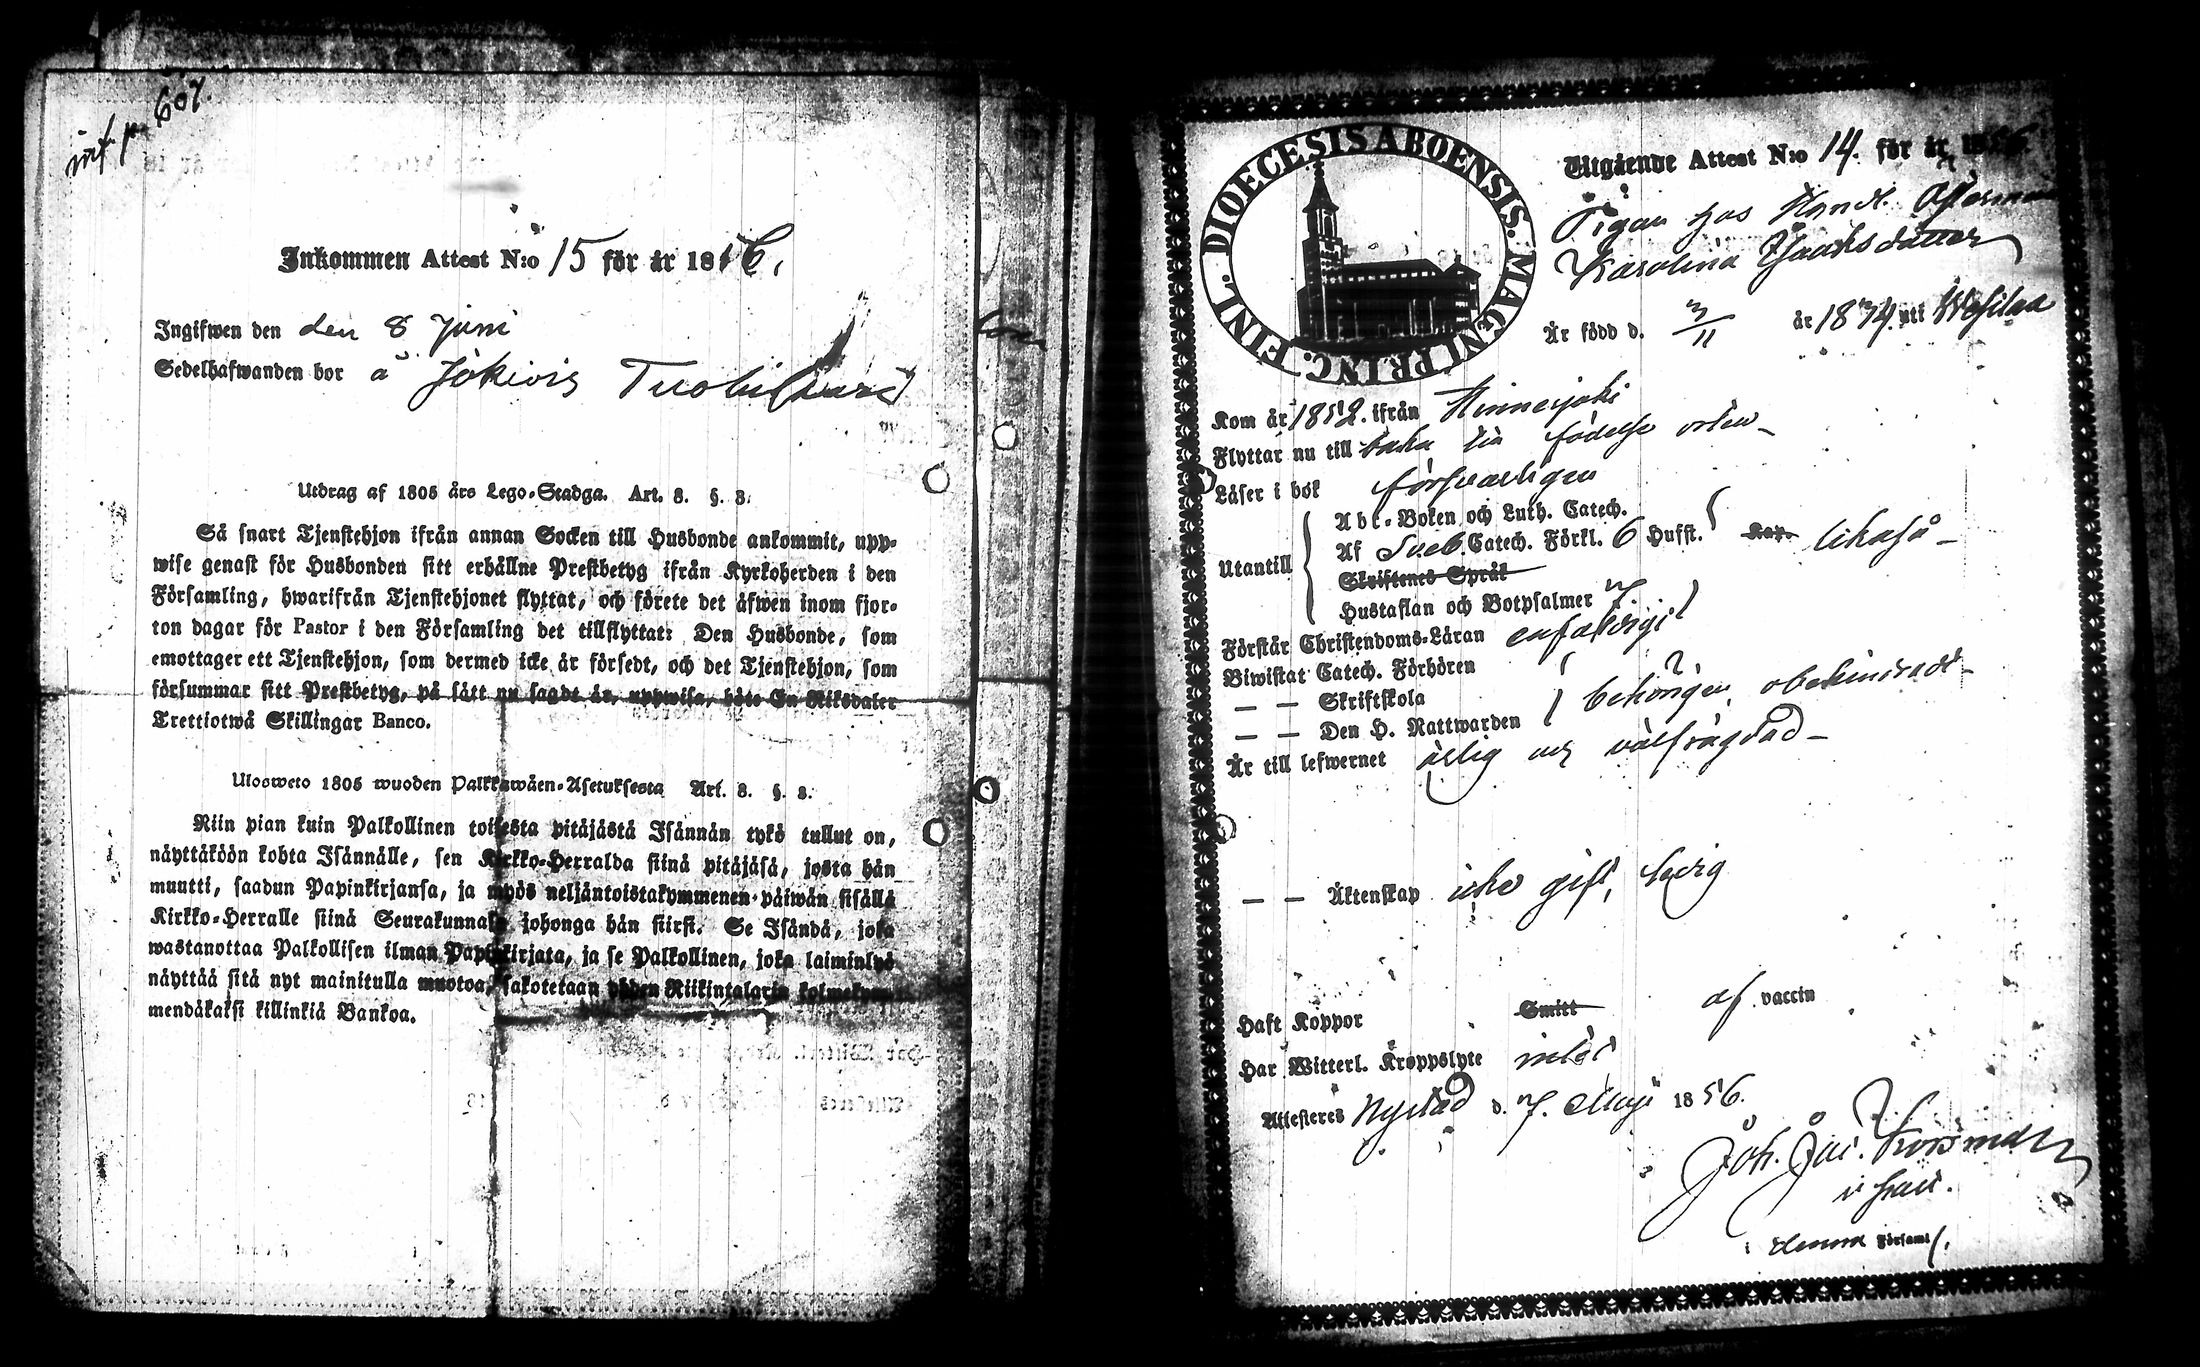 inf p 607.
Inkommen Attest N:o 15 för år 1856.
Ingifwen den den 8 Juni
Sedelhafwanden bor å Jokiois
Utdrag af 1805 års Lego-Stadga. Art. 8. §. 3.
Så snart Tjenstehjon ifrån annan Socken till Husbonde ankommit, upp-
wise genast för Husbonden sitt erhållne Prestbetyg ifrån Kyrkoherden i den
Församling, hwarifrån Tjenstehjonet flyttat, och förete det äfwen inom fjor-
ton dagar för Pastor i den Församling det tillflyttat: Den Husbonde, som
emottager ett Tjenstehjon, som dermed icke är försedt, och det Tjenstehjon, som
försummar sitt Prestbetyg, på sätt nu sagdt är, uppwisa, böte En Riksdaler
Trettiotwå Skillingar Banco.
Ulosweto 1805 wuoden Palkkawäen-Asetuksesta Art. 8. §. 3.
Niin pian kuin Palkollinen toisesta pitäjästä Isännän tykö tullut on,
näyttäköön kohta Isännälle, sen Kirkko-Herralda siinä pitäjäsä, josta hän
muutti, saadun Papinkirjansa, ja myös neljäntoistakymmenen-päiwän sisällä
Kirkko-Herralle siinä Seurakunnasa johonga hän siirsi. Se Isändä, joka
wastanottaa Palkollisen ilman Papinkirjata, ja se Palkollinen, joka laiminlyö
näyttää sitä nyt mainitulla muotoa, sakotetaan yhden Riikintalarin kolmekym-
mendäkaksi killinkiä Bankoa.
DIOECESIS ABOENSIS. MAGNI PRINC. FINL.
Utgående Attest N:o 14. för år 1856.
Pigan hos Handl.
Karolina Isaaksdotter
Är född d. 3/11 år 1834 uti
Kom år 1852. ifrån Hinnerjoki
Flyttar nu till baka till födelse orten
Läser i bok försvarligen
Utantill
Abc-Boken och Luth. Catech.
Af Sveb. Catech. Förkl. 6 Hufst. Kap. likaså
Skriftenes Språk
Hustaflan och Botpsalmer 7
Förstår Christendoms-Läran enfaldigt
Biwistat Catech. Förhören
— — Skriftskola behörigen obehindradt
— — Den H. Nattwarden
Är till lefwernet ärlig och välfrägdad
— — Äktenskap icke gift, ledig
Haft Koppor Smitt af vaccin
Har Witterl. Kroppslyte intet
Attesteras Nystad d. 7. Maji 1856.
Joh. Jac.
i Församl.